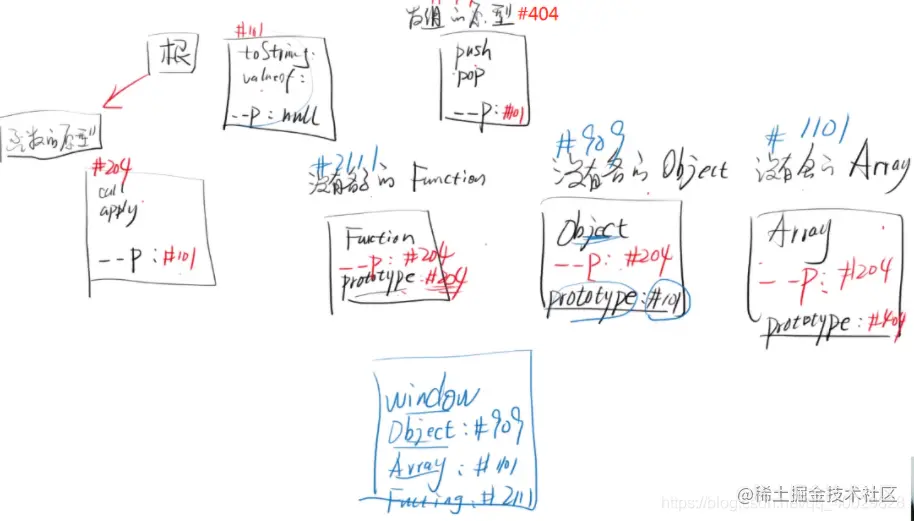 数组的原型 #404
根
#101
toString:
valueof:
--P: null
push
pop
--P: #101
函数的原型
#204
call
apply
--P: #101
#2111
没有名的 Function
Function
--P: #204
prototype: #204
#909
没有名的 Object
Object
--P: #204
prototype: #101
#1101
没有名的 Array
Array
--P: #204
prototype: #404
window
Object: #909
Array: #1101
#2111
@稀土掘金技术社区